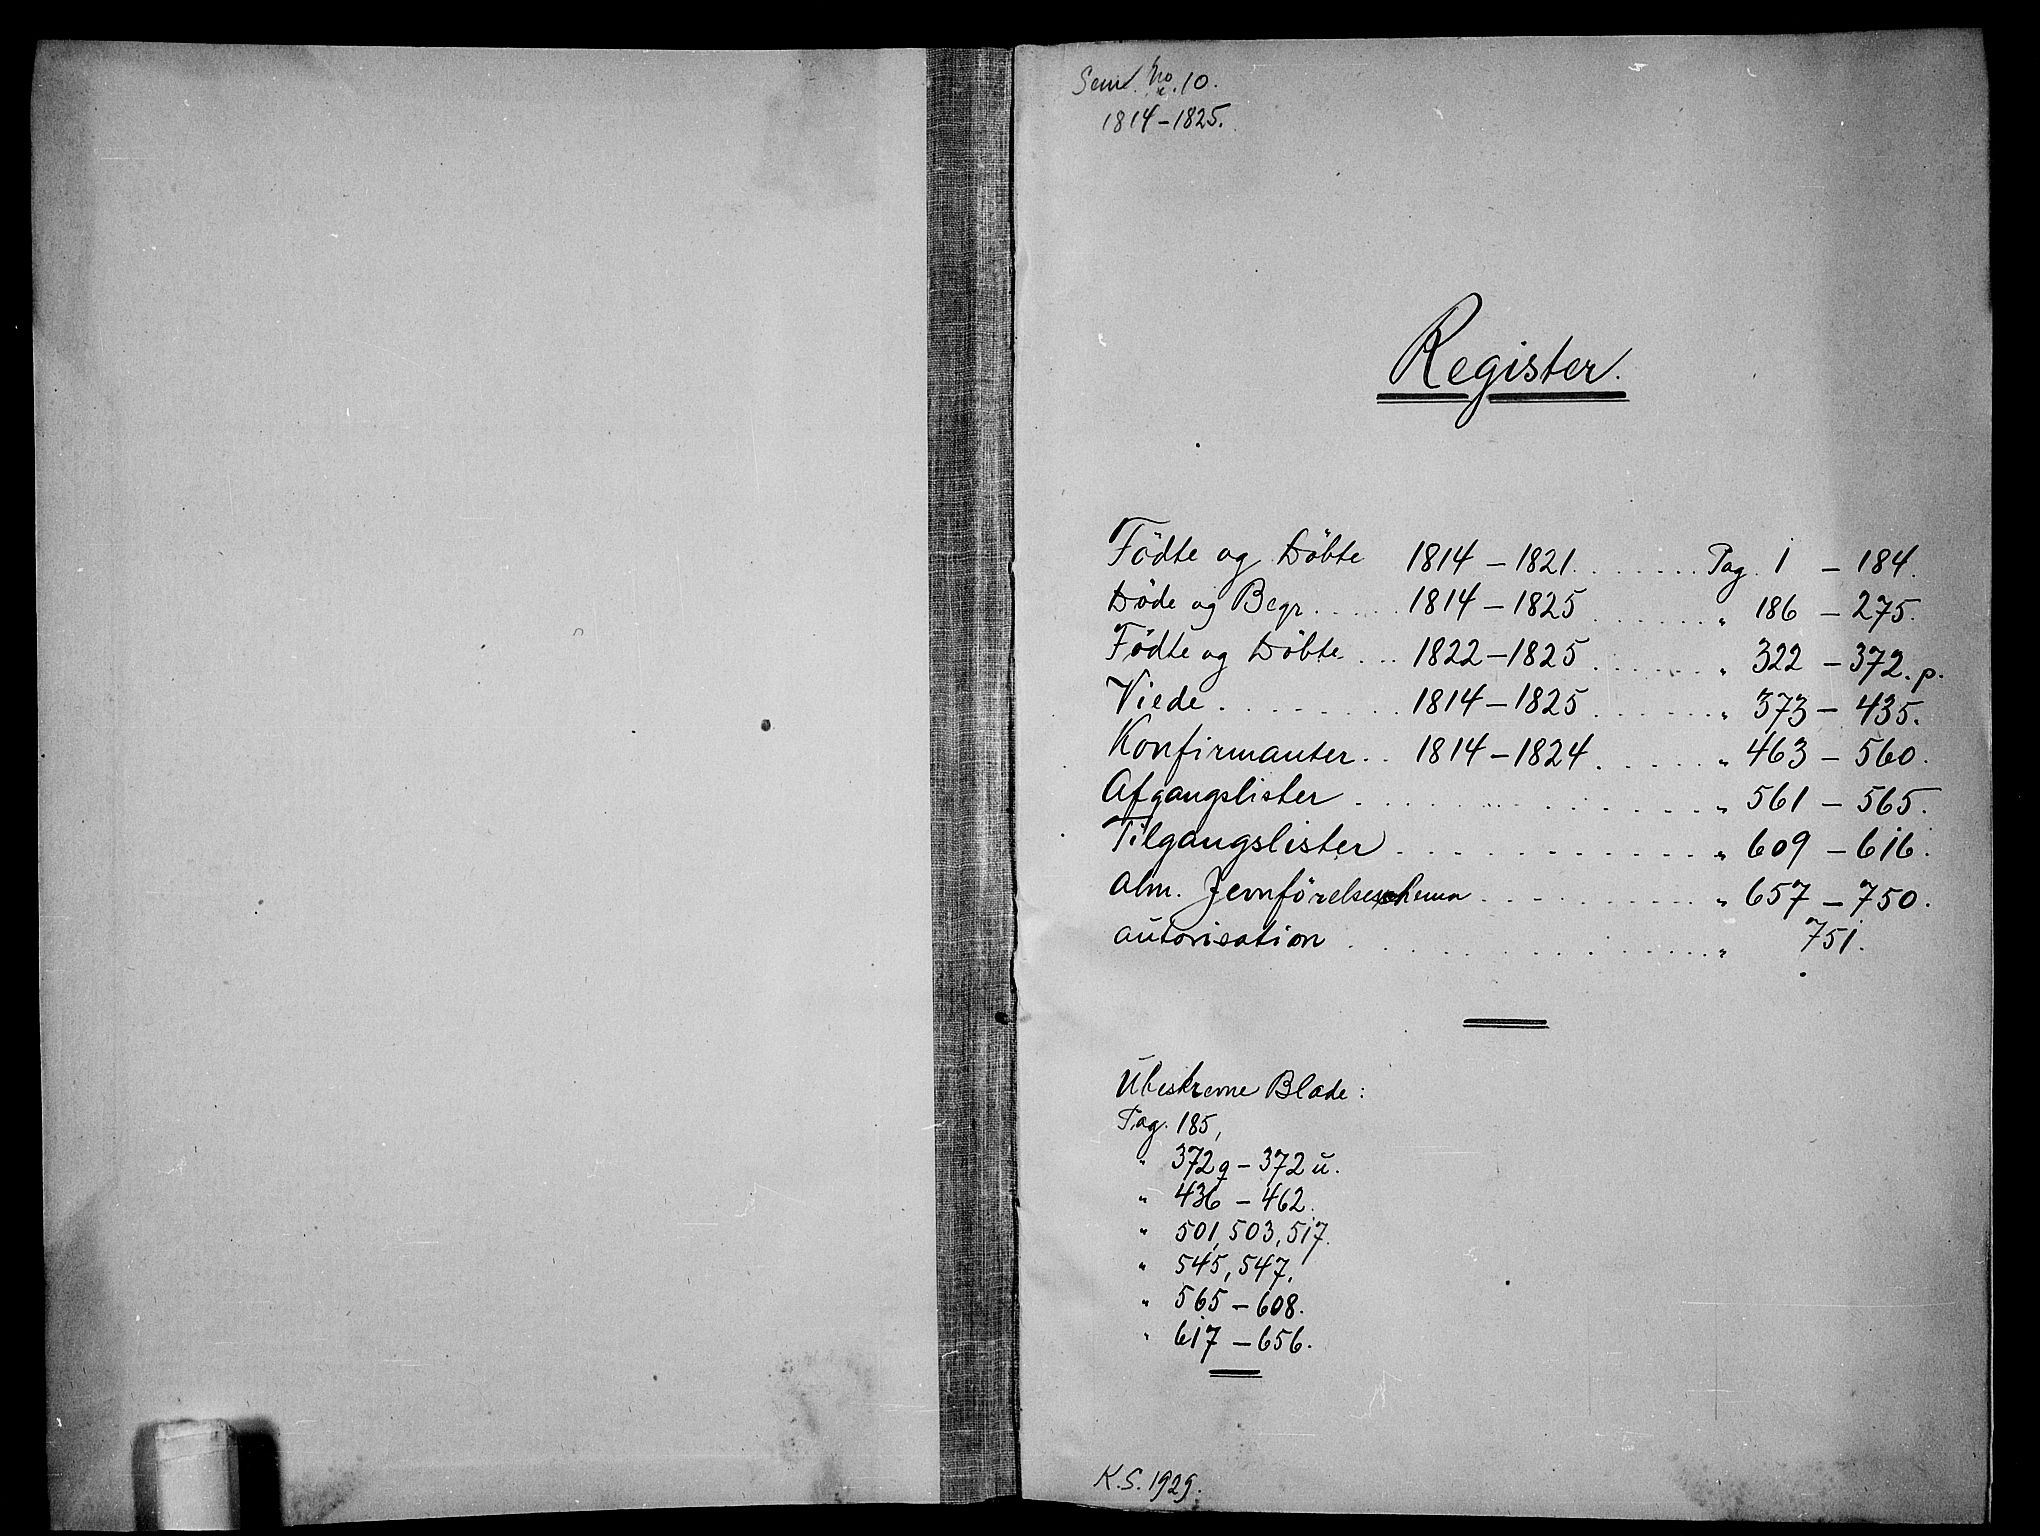 Sem No. 10.
1814-1825.
Register.
Födte og Döbte 1814 - 1821 . . . . . . . Pag. 1 - 184.
Döde og Begr. . . . . 1814 - 1825 . . . . . . . " 186 - 275.
Födte og Döbte . . . 1822 - 1825 . . . . . . . " 322 - 372.p.
Viede . . . . . . . . 1814 - 1825 . . . . . . . " 373 - 435.
Konfirmanter . . 1814 - 1824 . . . . . . . " 463 - 560.
Afgangslister . . . . . . . . . . . . . . . . " 561 - 565.
Tilgangslister . . . . . . . . . . . . . . . " 609 - 616.
Alm. Jevnförelsesschema . . . . . . . . . . " 657 - 750.
Autorisation . . . . . . . . . . . . . . . . " 751.
Ubeskrevne Blade:
Pag. 185,
" 372q - 372u.
" 436 - 462.
" 501, 503, 517.
" 545, 547.
" 565 - 608.
" 617 - 656.
K.S. 1929.